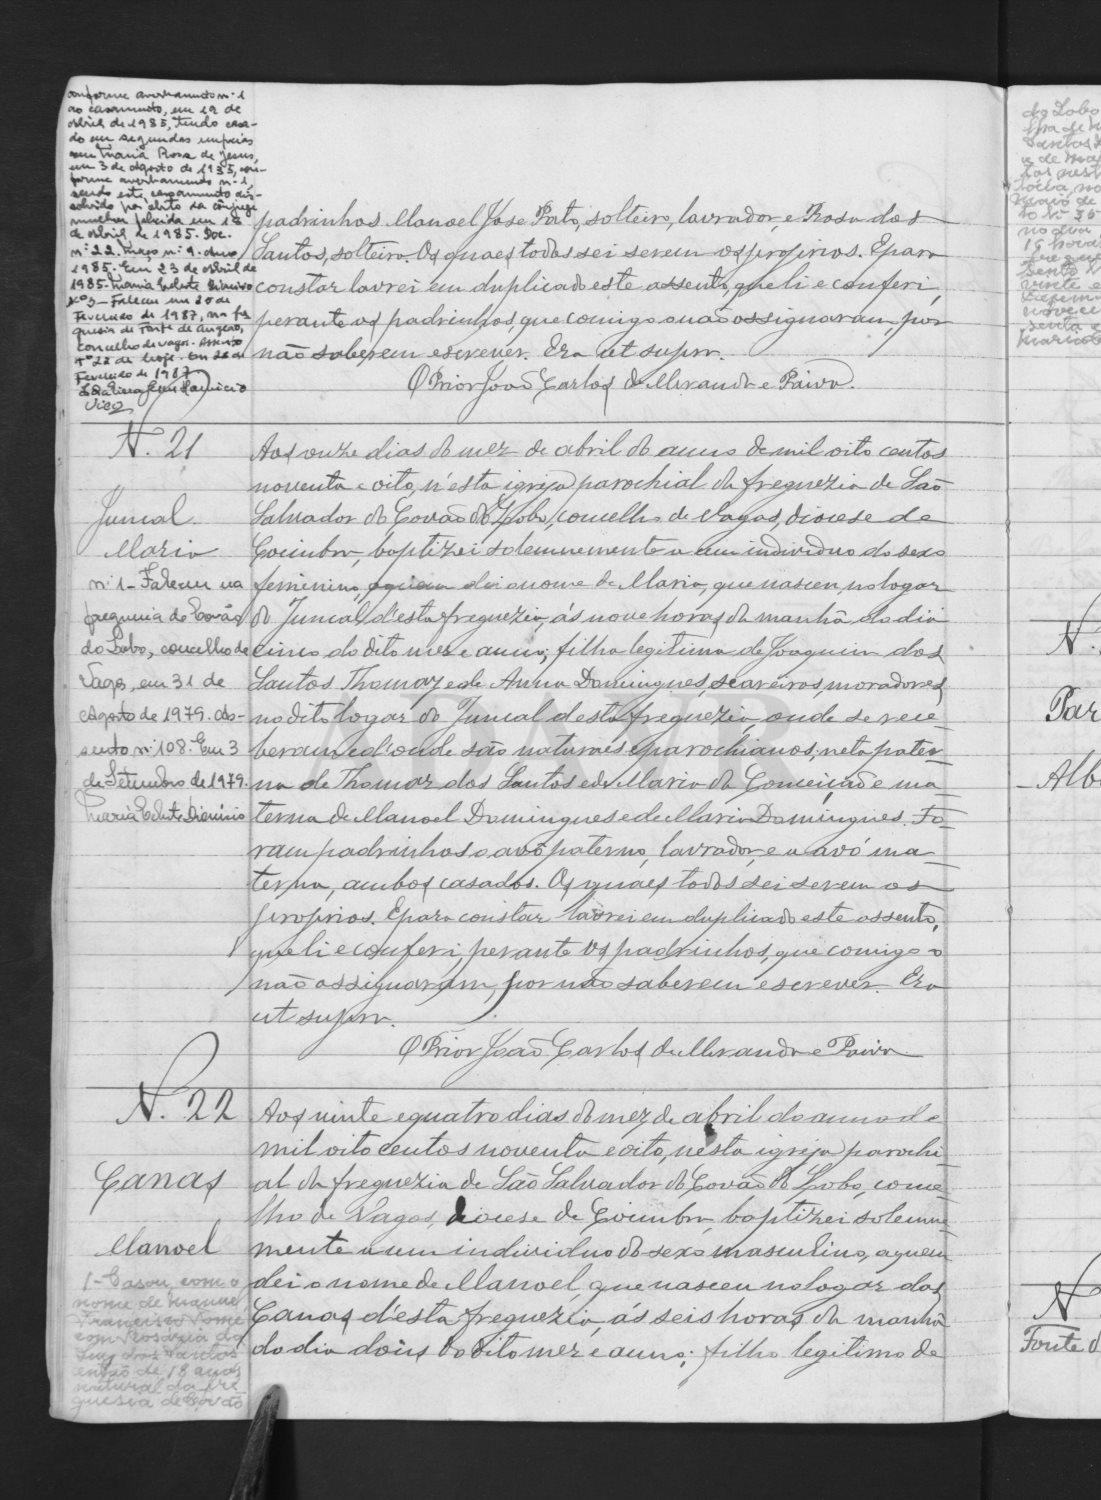 conforme averbamento nº 1
ao casamento, em 19 de
Abril de 1985, tendo casa-
do em segundas nupcias
com Maria Rosa de Jesus,
em 3 de Agosto de 1935, con-
forme averbamento nº 1,
sendo este casamento dis-
solvido por óbito da conjuge
mulher falecida em 18
de Abril de 1985. Doc.
nº 22. Maço nº 9. Ano
1985. Em 23 de Abril de
1985. Maria Odete Dionísio
Nº 3 - Faleceu em 20 de
Fevereiro de 1987, na fre
guesia de Fonte de Angeão,
concelho de Vagos. Assento
nº 22 de hoje. Em 20 de
Fevereiro de 1987
padrinhos Manoel José Porto, solteiro, lavrador, e Rosa dos
Santos, solteira. Os quaes todos sei serem os proprios. E para
constar lavrei em duplicado este assento, que li e conferi,
perante os padrinhos, que comigo o não assignaram, por
não saberem escrever. Era ut supra.
O Prior João Carlos de Miranda e Paiva.
N. 21
Juncal
Maria
nº 1 - Faleceu na
freguesia de Covão
do Lobo, concelho de
Vagos, em 31 de
Agosto de 1979. As-
sento nº 108. Em 3
de Setembro de 1979.
Maria Odete Dionísio
Aos onze dias do mez de abril do anno de mil oito centos
noventa e oito, n'esta igreja parochial da freguezia de São
Salvador do Covão do Lobo, concelho de Vagos, diocese de
Coimbra, baptizei solemnemente a um individuo do sexo
feminino, a quem dei o nome de Maria, que nasceu no logar
do Juncal d'esta freguezia, ás nove horas da manhã do dia
cinco do dito mez e anno; filha legitima de Joaquim dos
Santos Thomaz e de Anna Domingues, seareiros, moradores,
no dito logar do Juncal d'esta freguezia, onde se rece-
beram e d'onde são naturaes e parochianos, neta pater-
na de Thomaz dos Santos e de Maria da Conceição e ma-
terna de Manoel Domingues e de Maria Domingues. Fo-
ram padrinhos o avô paterno, lavrador, e a avó ma-
terna, ambos casados. Os quaes todos sei serem os
proprios. E para constar lavrei em duplicado este assento,
que li e conferi, perante os padrinhos, que comigo o
não assignaram, por não saberem escrever. Era
ut supra.
O Prior João Carlos de Miranda e Paiva
N. 22
Canas
Manoel
1 - Casou, com o
nome de Manuel
Francisco Nome
com Rosaria da
Luz dos Santos
então de 18 anos
natural da fre
guesia de Covão
Aos vinte e quatro dias do mez de abril do anno de
mil oito centos noventa e oito, n'esta igreja parochi-
al da freguezia de São Salvador do Covão do Lobo, conce-
lho de Vagos, diocese de Coimbra, baptizei solemne-
mente a um individuo do sexo masculino, a quem
dei o nome de Manoel, que nasceu no logar das
Canas d'esta freguezia, ás seis horas da manhã
do dia dois do dito mez e anno; filho legitimo de
do Lobo
N.
Par
Alb
N
Fonte d